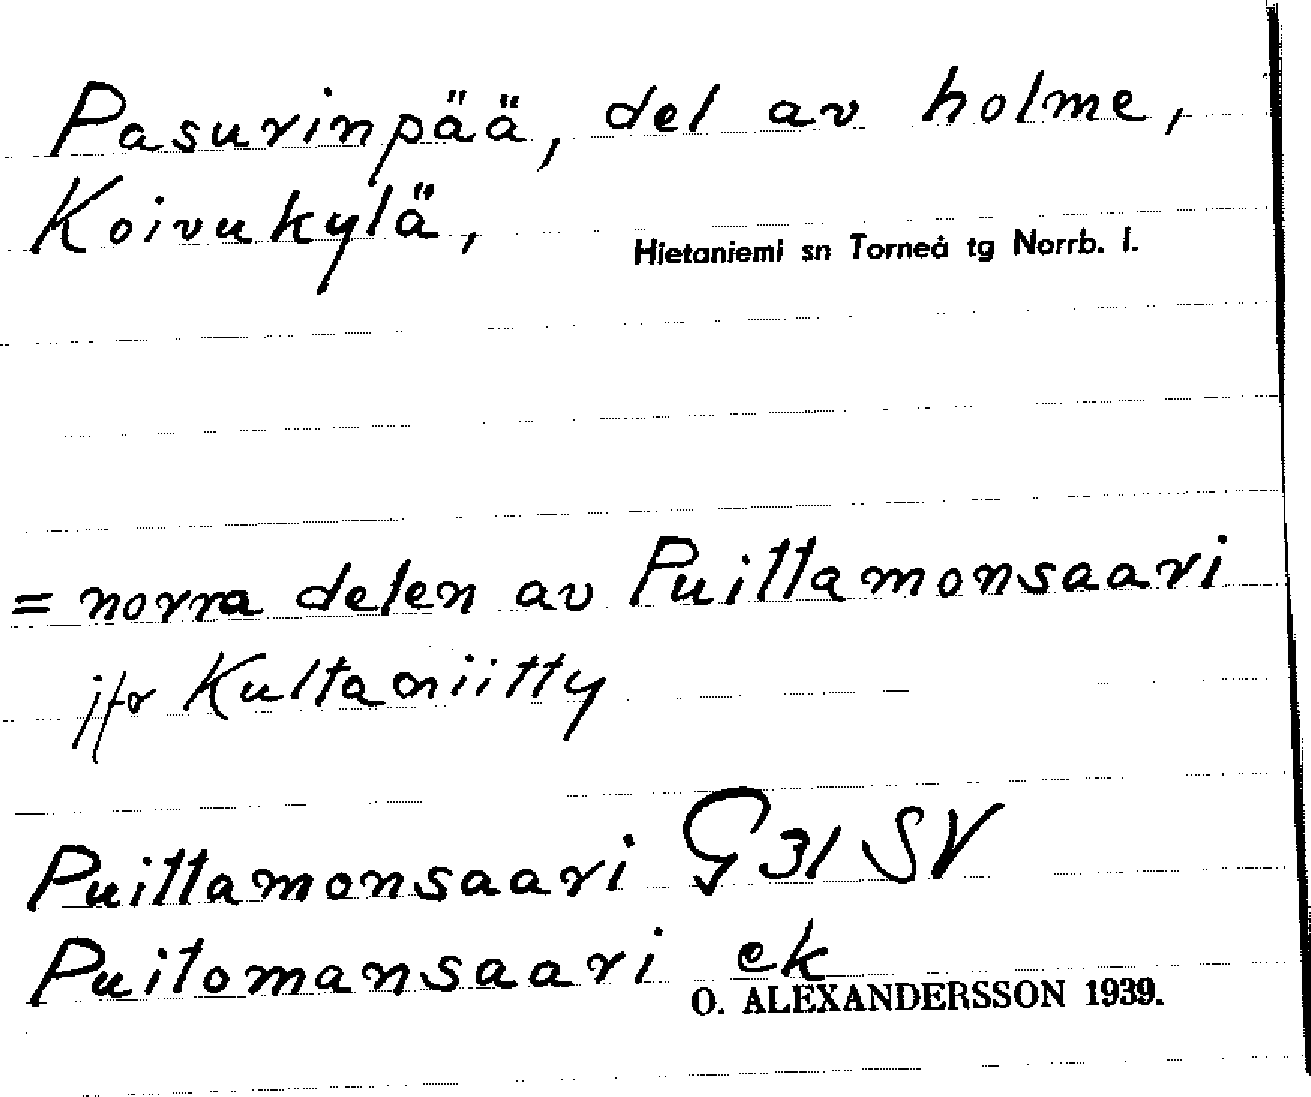 Pasurinpää, del av holme,
Koivukylä,
Hietaniemi sn Torneå tg Norrb. l.
= norra delen av Puittamonsaari
jfr Kultaniitty
Puittamonsaari G 31 SV
Puitomansaari ek
O. ALEXANDERSSON 1939.